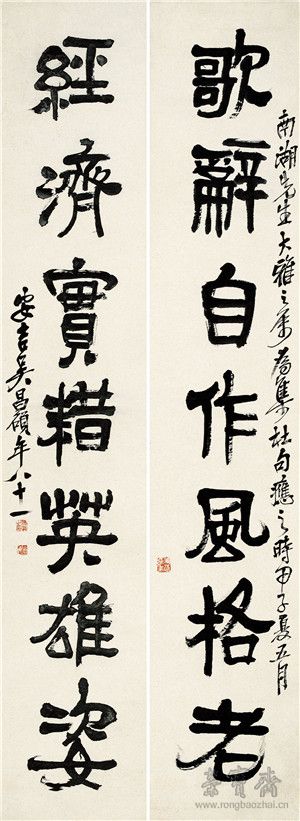 南湖先生大雅之属為集杜句應之時甲子夏五月
歌辭自作風格老
經濟實耤英雄姿
安吉吴昌碩年八十一
榮寶齋
www.rongbaozhai.cn